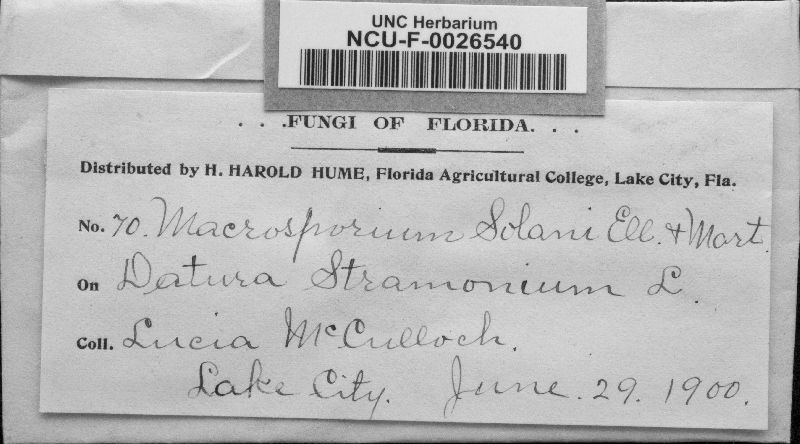 UNC Herbarium
NCU-F-0026540
. . .FUNGI OF FLORIDA. . .
Distributed by H. HAROLD HUME, Florida Agricultural College, Lake City, Fla.
No. 70. Macrosporium Solani Ell. & Mart.
On Datura Stramonium L.
Coll. Lucia McCulloch.
Lake City. June. 29. 1900.